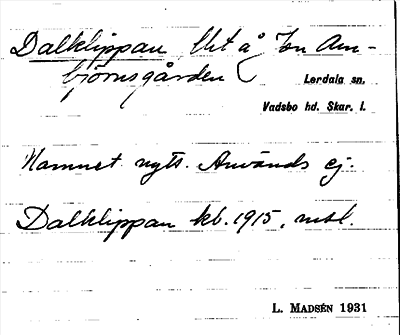 Dalklippan Utå Jn Arn-
björnsgården
Lerdala sn.
Vadsbo hd. Skar. l.
Namnet nytt. Används ej.
Dalklippan kb. 1915, msl.
L. MADSÉN 1931